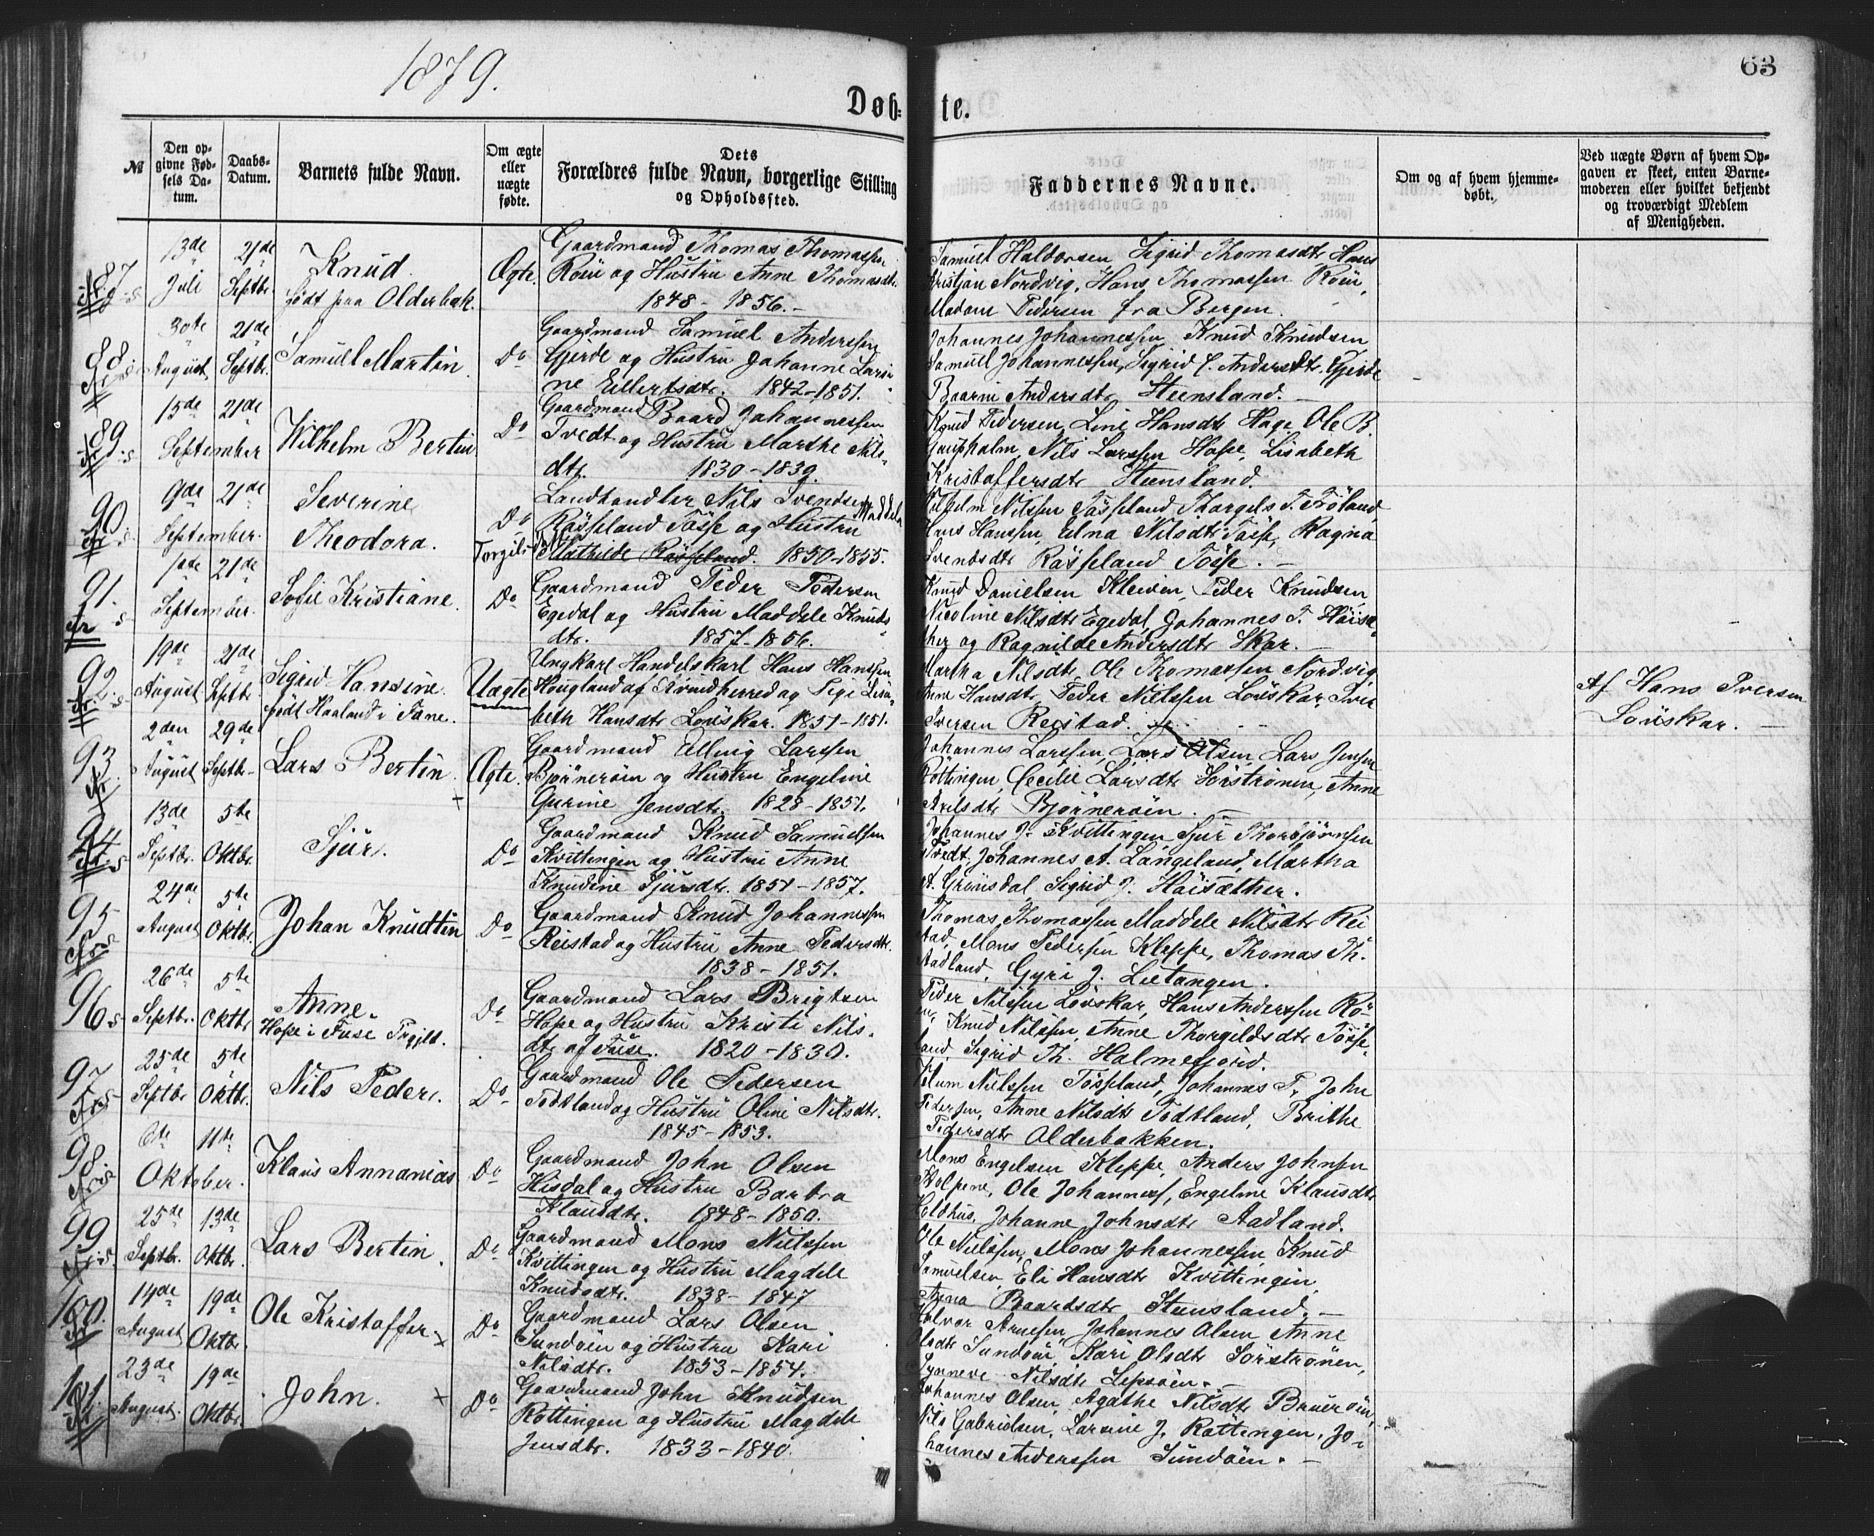 1879.
63
Døb-
te.
№
Den op-
givne Fød-
sels Da-
tum.
Daabs-
Datum.
Barnets fulde Navn.
Om ægte
eller
uægte
fødte.
Dets
Forældres fulde Navn, borgerlige Stilling
og Opholdssted.
Faddernes Navne.
Om og af hvem hjemme-
døbt.
Ved uægte Børn af hvem Op-
gaven er skeet, enten Barne-
moderen eller hvilket bekjendt
og troværdigt Medlem
af Menigheden.
87
13de
Juli
21de
Septbr.
Knud
født paa Olderbak.
Ægte.
Gaardmand Thomas Thomassen
Röen og Hustru Anne Thomasdtr.
1848 - 1856.
Samuel Haldorsen, Sigrid Thomasdtr, Hans
Kristian Nordvig, Hans Thomassen Röen,
Madam Pedersen fra Bergen.
88
30te
August
21de
Septbr.
Samuel Martin
Do
Gaardmand Samuel Anderssen
Gjerde og Hustru Johanne Larsi
ne Ellertsdtr. 1842-1851.
Johannes Johannessen, Knud Knudsen
Samuel Johannessen, Sigrid C. Andersdtr. Gjerde
Baarni Andersdtr Steensland.
89
15de
21de
September
Wilhelm Bertin
Do
Gaardmand Baard Johannessen
Tvedt og Hustru Marthe Nils-
dtr. 1830-1839.
Knud Pedersen, Line Hansdtr Hage, Ole B.
Gaupholm, Nils Larssen Hope, Lisabeth
Kristoffersdtr Steensland.
90
9de
21de
September.
Severine
Theodora.
Do
Landhandler Nils Svendsen
Röspeland Töspe og Hustru
Mathilde Röspeland. 1850-1855.
Maddela
Torgilsdatter
Vilhelm Nilssen Töspeland, Thorgels T. Fröland,
Hans Hanssen, Elna Nilsdtr Töspe, Ragna
Svendsdtr Röspeland Töspe.
91.
1ste
21de
September.
Sofie Kristiane.
Do
Gaardmand Peder Pedersen
Egedal og Hustru Maddele Knuds-
dtr. 1857-1856.
Knud Danielsen Kleiven, Peder Knudsen,
Nicoline Nilsdtr Egedal, Johannes T. Höisæ-
ther og Ragnilde Andersdtr Skar.
92
19de
August
21de
Septbr
Sigrid Hansine.
født Haaland i Fane.
Uægte
Ungkarl Handelskarl Hans Hanssen
Hougland af Kvindherred og Pige Lisa-
beth Hansdtr Löuskar. 1851-1851.
Martha Nilsdtr, Ole Thomassen Nordvig
Anne Hansdtr Peder Nielssen Löuskar, Iver
Iversen Reistad.
Af Hans Iversen
Löuskar.
93
2den
August
29de
Septbr
Lars Bertin.
Ægte.
Gaardmand Elling Larssen
Björneröin og Hustru Engeline
Gurine Jensdtr. 1828-1851.
Johannes Larssen, Lars Olsen, Lars Jensen
Röttingen, Cecilie Larsdtr Sörströnen, Anne
Arilsdtr Björneröin.
94
13de
Septbr.
5te
Oktbr
Sjur.
Do
Gaardmand Knud Samuelssen
Kvittingen og Hustru Anne
Knudine Sjursdtr. 1851-1857.
Johannes J. Kvittingen, Sjur Thorbjörnsen
Tvedt, Johannes A. Langeland, Martha
A. Grönsdal, Sigrid J. Höisæther.
95
24de
August
5te
Oktbr.
Johan Knudtin
Do
Gaardmand Knud Johannessen
Reistad og Hustru Anne Pedersdtr.
1838-1851.
Thomas Thomassen, Maddele Nilsdtr Rei
stad, Mons Pedersen Kleppe, Thomas Th.
Aadland, Gyri J. Lietangen.
96
26de
Septbr.
5te
Oktbr
Anne.
Hope i Fuse Prgjld.
Do
Gaardmand Lars Brigtsen
Hope og Hustru Kristi Nils-
dtr af Fuse. 1820-1830.
Peder Nilsen Löuskar, Hans Anderssen Rö-
en, Knud Nilssen, Anne Thorgeldsdtr Töspe-
land, Sigrid Th. Halmefjord.
97
25de
Septbr
5te
Oktbr.
Nils Peder.
Do
Gaardmand Ole Pedersen
Todtland og Hustru Oline Nilsdtr.
1845-1853.
Villum Nilssen Töspeland, Johannes P., John
Pedersen, Anne Nilsdtr Todtland, Brithe
Pedersdtr Olderbakken.
98
6te
11te
Oktober.
Klaus Annanias
Do
Gaardmand John Olsen
Hisdal og Hustru Barbra
Klausdtr. 1848-1850.
Mons Engelsen Kleppe, Anders Johnsen
Stolpene, Ole Johannesf, Engeline Klausdtr
Holdhus, Johanne Johnsdtr Aadland.
99
25de
Septbr.
13de
Oktbr.
Lars Bertin.
Do
Gaardmand Mons Nielssen
Kvittingen og Hustru Magdele
Knudsdtr. 1838-1847
Ole Nielssen, Mons Johannessen, Knud
Samuelsen, Eli Hansdtr Kvittingen,
Anna Baardsdtr Steensland.
100.
14de
August
19de
Oktbr.
Ole Kristoffer
Do
Gaardmand Lars Olsen
Sundöen og Hustru Kari
Nilsdtr. 1853-1854.
Halvor Arnesen, Johannes Olsen, Anne
Olsdtr Sundöen, Kari Olsdtr Sörströnen,
Synneve Nilsdtr Lepsöen.
101
23de
August.
19de
Oktbr
John.
Do
Gaardmand John Knudsen
Röttingen og Hustru Magdele
Jensdtr. 1833-1840.
Johannes Olsen, Agathe Nilsdtr Brueröin,
Nils Gabrielsen, Larsine J. Röttingen, Jo-
hannes Anderssen Sundöen.